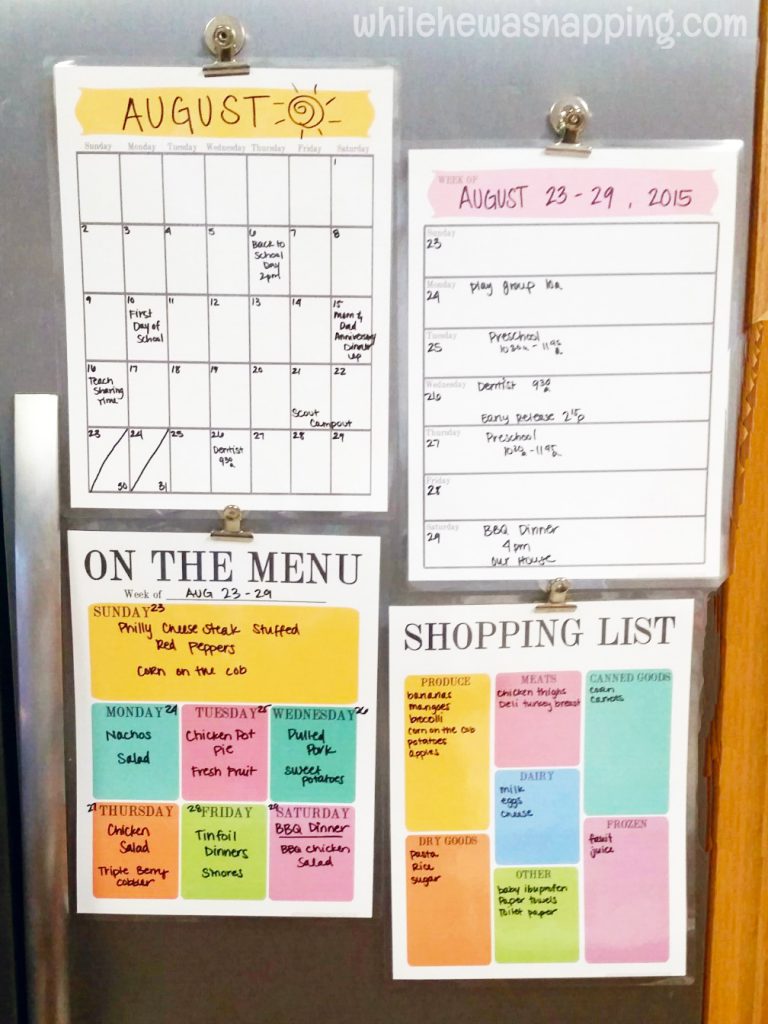 whilehewasnapping.com
AUGUST
Sunday Monday Tuesday Wednesday Thursday Friday Saturday
1
2 3 4 5 6 7 8
Back to
School
Day
2pm
9 10 11 12 13 14 15
First
Day of
School
Mom &
Dad
Anniversary
Dinner
6p
16 17 18 19 20 21 22
Teach
Sharing
Time
Scout
Campout
23 24 25 26 27 28 29
Dentist
9:30
a
30 31
WEEK OF
AUGUST 23-29, 2015
Sunday
23
Monday
24 Play group 10a.
Tuesday
25 Preschool
10:30a-11:45a
Wednesday
26 Dentist 9:30a
Early Release 2:15p
Thursday
27 Preschool
10:30a-11:45a
Friday
28
Saturday
29 BBQ Dinner
4pm
Our House
ON THE MENU
Week of AUG 23-29
SUNDAY 23
Philly Cheese Steak Stuffed
Red Peppers
Corn on the cob
MONDAY 24
Nachos
Salad
TUESDAY 25
Chicken Pot
Pie
Fresh Fruit
WEDNESDAY 26
Pulled
Pork
Sweet
potatoes
27 THURSDAY
Chicken
Salad
Triple Berry
cobbler
28 FRIDAY
Tinfoil
Dinners
S'mores
29 SATURDAY
BBQ Dinner
BBQ Chicken
Salad
SHOPPING LIST
PRODUCE
bananas
mangoes
brocolli
corn on the cob
potatoes
apples
MEATS
chicken thighs
Deli turkey breast
CANNED GOODS
corn
carrots
DAIRY
milk
eggs
cheese
DRY GOODS
Pasta
Rice
sugar
OTHER
baby ibuprofen
Paper towels
Toilet paper
FROZEN
fruit
juice